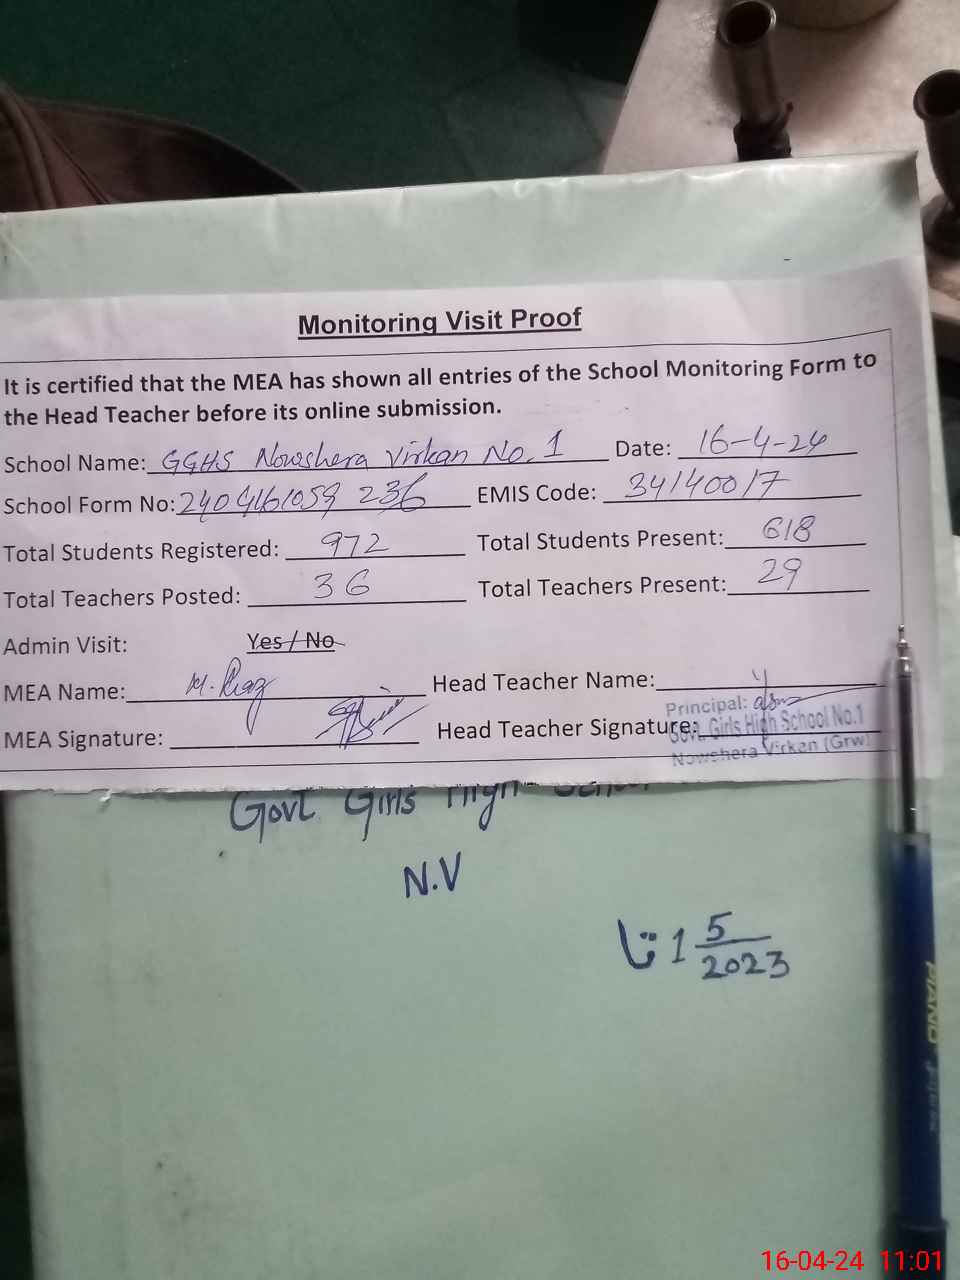 Monitoring Visit Proof
It is certified that the MEA has shown all entries of the School Monitoring Form to
the Head Teacher before its online submission.
School Name: GGHS Nowshera Virkan No. 1 Date: 16-4-24
School Form No: 2404161059 236 EMIS Code: 34140017
Total Students Registered: 972 Total Students Present: 618
Total Teachers Posted: 36 Total Teachers Present: 29
Admin Visit: Yes / No
MEA Name: M. Riaz Head Teacher Name:
Principal:
MEA Signature: Head Teacher Signature:
Govt. Girls High School No.1
Nowshera Virkan (Grw)
Govt Girls High School
N.V
1 5/2023
PIANO
16-04-24 11:01